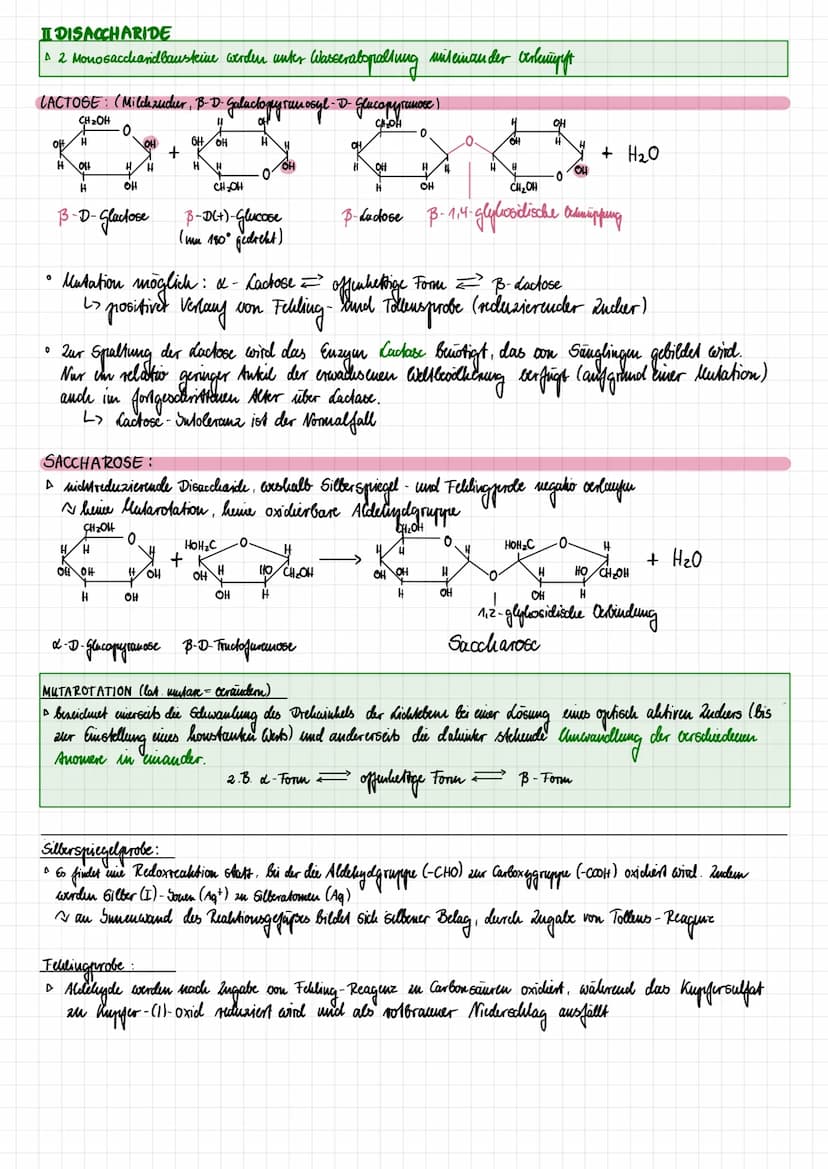 II DISACCHARIDE
▹ 2 Monosaccharidbausteine werden unter Wasserabspaltung miteinander verknüpft
LACTOSE: (Milchzucker, β-D-Galactopyranosyl-D-Glucopyranose)
CH₂OH O OH H OH H OH H H H OH
+
H OH H OH H H OH O CH₂OH
CH₂OH O OH H OH H H H OH
O
OH H H OH H O CH₂OH
+ H₂O
β-D-Glactose
β-D(+)-Glucose
(um 180° gedreht)
β-Lactose
β-1,4-glykosidische Verknüpfung
• Mutation möglich: α-Lactose ⇌ offenkettige Form ⇌ β-Lactose
↳ positiver Verlauf von Fehling- und Tollensprobe (reduzierender Zucker)
• Zur Spaltung der Lactose wird das Enzym Lactase benötigt, das von Säuglingen gebildet wird.
Nur ein relativ geringer Anteil der erwachsenen Weltbevölkerung verfügt (aufgrund einer Mutation)
auch im fortgeschrittenen Alter über Lactase.
↳ Lactose-Intoleranz ist der Normalfall
SACCHAROSE:
▹ nichtreduzierende Disaccharide, weshalb Silberspiegel- und Fehlingprobe negativ verlaufen
↝ keine Mutarotation, keine oxidierbare Aldehydgruppe
CH₂OH O H H H OH OH H OH H OH
+
HOH₂C O H OH H HO CH₂OH OH H
→
CH₂OH O H H H OH OH H H OH
O
HOH₂C O H H HO CH₂OH OH H
+ H₂O
1,2-glykosidische Verbindung
α-D-Glucopyranose
β-D-Fructofuranose
Saccharose
MUTAROTATION (lat. mutare = verändern)
▹ bezeichnet einerseits die Schwankung des Drehwinkels der Lichtebene bei einer Lösung eines optisch aktiven Zuckers (bis
zur Einstellung eines konstanten Werts) und andererseits die dahinter stehende Umwandlung der verschiedenen
Anomere in einander.
z.B. α-Form ⇌ offenkettige Form ⇌ β-Form
Silberspiegelprobe:
▹ Es findet eine Redoxreaktion statt, bei der die Aldehydgruppe (-CHO) zur Carboxygruppe (-COOH) oxidiert wird. Zudem
werden Silber(I)-Ionen (Ag⁺) zu Silberatomen (Ag)
↝ an Innenwand des Reaktionsgefäßes bildet sich silberner Belag, durch Zugabe von Tollens-Reagenz
Fehlingprobe:
▹ Aldehyde werden nach Zugabe von Fehling-Reagenz zu Carbonsäuren oxidiert, während das Kupfersulfat
zu Kupfer-(I)-oxid reduziert wird und als rotbrauner Niederschlag ausfällt